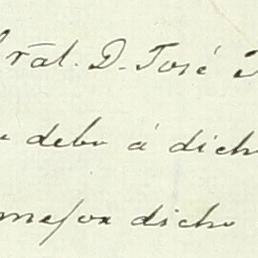 ral. D. José
debo á dich
mejor dicho